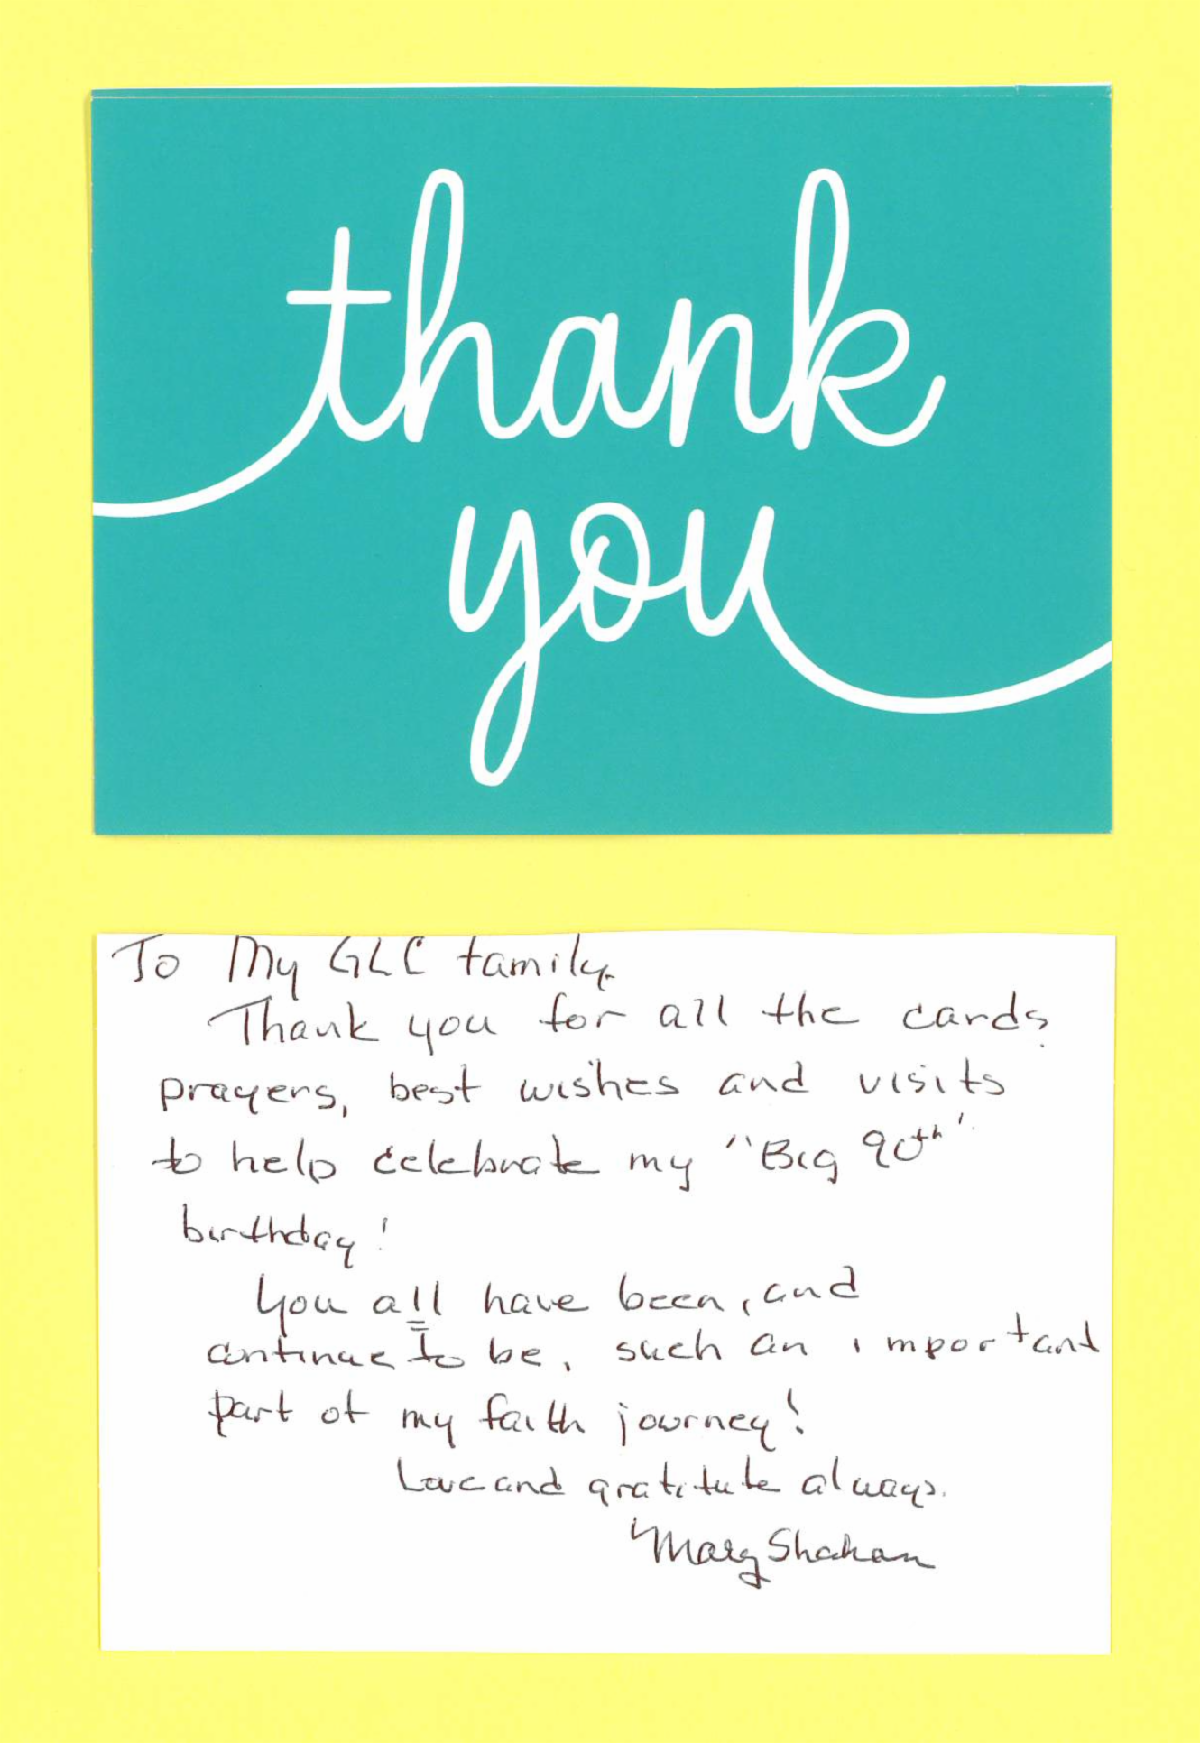 thank
you
To My GLC family.
Thank you for all the cards,
prayers, best wishes and visits
to help celebrate my "Big 90th"
birthday!
You all have been, and
continue to be, such an important
part of my faith journey!
Love and gratitute always.
Mary Shahan